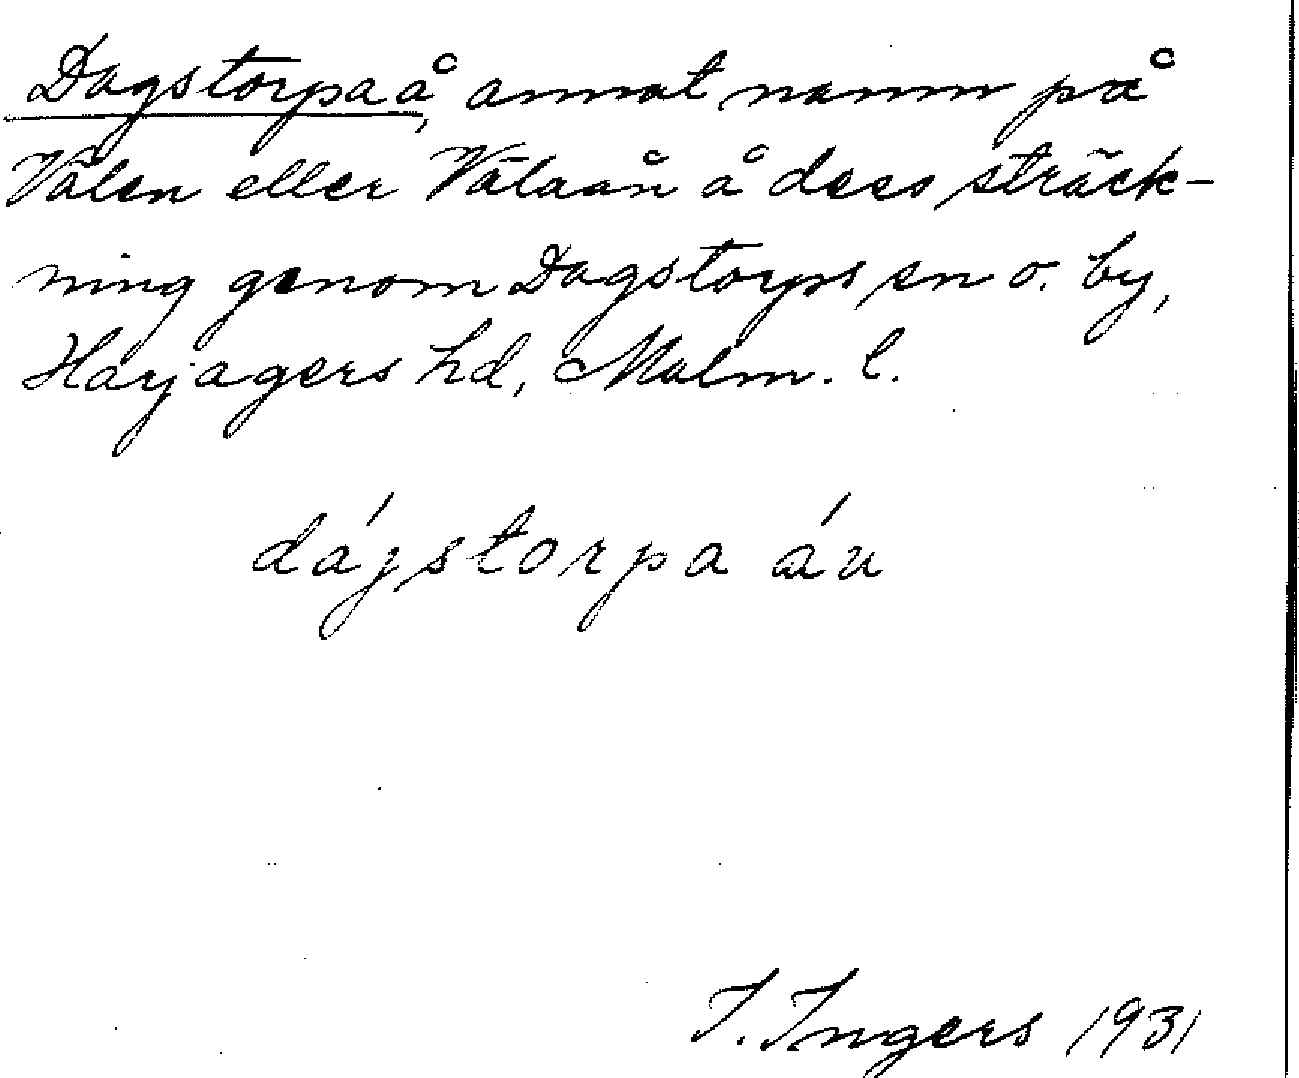 Dagstorpaå, annat namn på
Välen eller Välaån å dess sträck-
ning genom Dagstorps sn o. by,
Harjagers hd, Malm. l.
dágstorpa áu
I. Ingers 1931